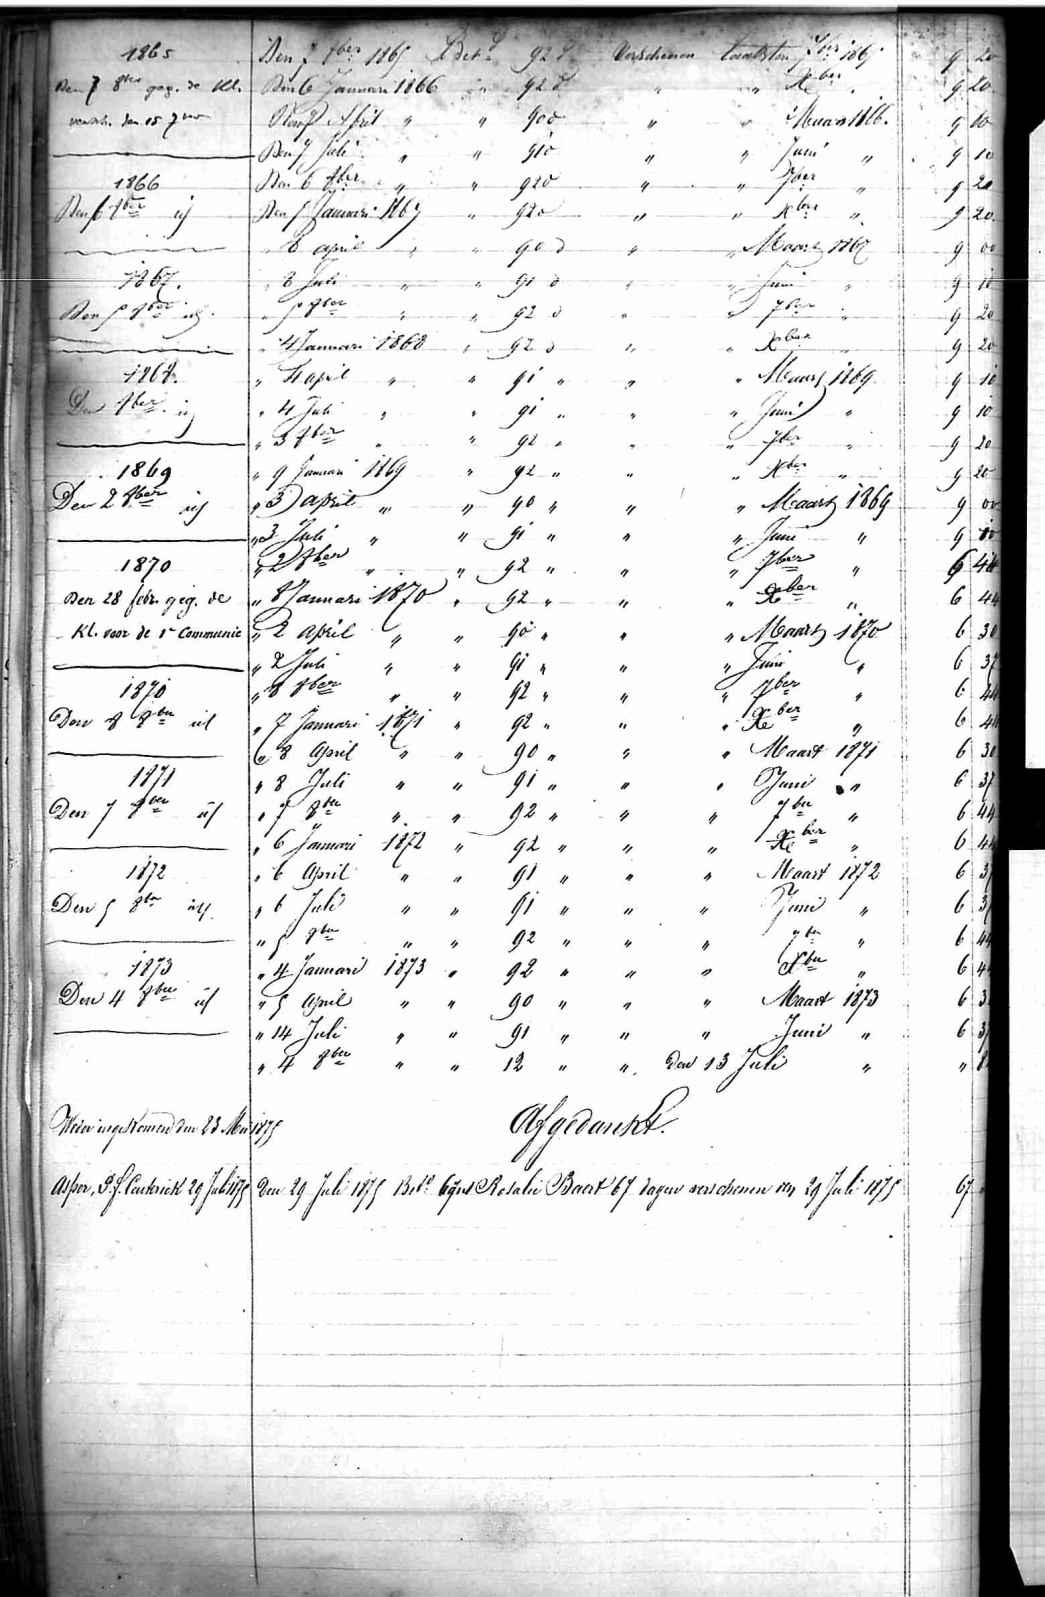 1865 Den 7 8ber 1865 Bet. 92 d verschenen laatsten 7ber 1865 9 20
Den 7 8ber geg. de Kl. Den 6 Januari 1866 " 92 d " " Xber " 9 20
versch. den 15 7ber Den 7 April " " 90 d " " Maart 1866. 9 10
Den 7 Juli " " 91 d " " Juni " 9 10
1866 Den 6 8ber " " 92 d " " 7ber " 9 20
Den 6 8ber id Den 5 Januari 1867 " 92 d " " Xber " 9 20
" 6 april " " 90 d " " Maart 1867 9 00
1867. " 8 Juli " " 91 d " " Juni " 9 10
Den 5 8ber id. " 5 8ber " " 92 d " " 7ber " 9 20
" 4 Januari 1868 " 92 d " " Xber " 9 20
1868. " 4 april " " 91 " " " Maart 1869 9 10
Den 8ber id " 4 Juli " " 91 " " " Juni " 9 10
" 3 8ber " " 92 " " " 7ber " 9 20
1869 " 9 Januari 1869 " 92 " " " Xber " 9 20
Den 2 8ber id " 3 april " " 90 " " " Maart 1869 9 00
" 3 Juli " " 91 " " " Juni " 9 10
1870 " 2 8ber " " 92 " " " 7ber " 6 44
Den 28 febr. geg. de " 8 Januari 1870 " 92 " " " Xber " 6 44
Kl. voor de 1e Communie " 2 april " " 90 " " " Maart 1870 6 30
" 2 Juli " " 91 " " " Juni " 6 37
1870 " 8 8ber " " 92 " " " 7ber " 6 44
Den 8 8ber id " 7 Januari 1871 " 92 " " " Xber " 6 44
" 8 April " " 90 " " " Maart 1871 6 30
1871 " 8 Juli " " 91 " " " Juni " 6 37
Den 7 8ber id " 7 8ber " " 92 " " " 7ber " 6 44
" 6 Januari 1872 " 92 " " " Xber " 6 44
1872 " 6 April " " 91 " " " Maart 1872 6 37
Den 5 8ber id. " 6 Juli " " 91 " " " Juni " 6 37
" 5 8ber " " 92 " " " 7ber " 6 44
1873 " 4 Januari 1873 " 92 " " " Xber " 6 4
Den 4 8ber id " 5 April " " 90 " " " Maart 1873 6 3
" 14 Juli " " 91 " " " Juni " 6 37
" 4 8ber " " 12 " " den 13 Juli " " 8
Weêr ingekomen den 23 Mei 1875 Afgedankt.
29 Juli 1875 Den 29 Juli 1875 Rosalie Baert 67 dagen verschenen den 29 Juli 1875 67